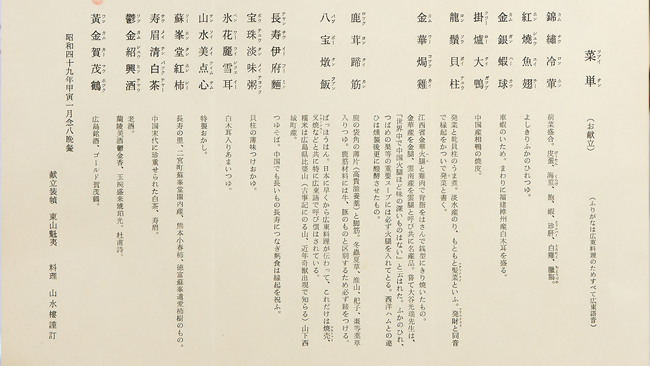 菜単 (お献立) (ふりがなは広東料理のためすべて広東語音)
錦繡冷葷 前菜盛合。皮蛋、海蜇、鮑、蝦、珍肝、白鶏、臘腸
紅燒魚翅 よしきりふかのひれつゆ。
金銀蝦球 車蝦のいため。まわりに福建種州産白木耳を盛る。
掛爐大鴨 中国産相鴨の焼皮。
龍鬚貝柱 発菜と乾貝柱のうま煮。淡水産のり、もともと髪菜といふ。発財と同音
で縁起をかついで発菜と書く。
金華焗雞 江西省金華火腿と鶏肉で背脂をはさんで銭型にきり焼いたもの。
金華産を金腿、雲南産を雲腿と呼び共に名産品。嘗て大谷光瑞先生は、
「世界中で中国火腿ほど味の深いものはない」と云はれた。ふかのひれ、
つばめの巣等の重要スープには必ず火腿を入れてとる。西洋ハムとの違
ひは燻製後更に醗酵させたもの。
鹿茸蹄筋 鹿の袋角の薄片(高貴滋養薬)と脚筋。冬蟲夏草、淮山、杞子、棗等薬草
入りつゆ。鹿筋材料には牛、豚のものと区別するため必ず蹄をつける。
八宝燉飯 ぱっぽうはん。日本に早くから広東料理が伝わって、これだけは焼売、
叉焼などと共に特に広東語で呼び慣はされている。
糯米は広島県比婆山(古事記にのる山、近年奇獣出現で知らる)山下西
城町産。
長寿伊府麵 つゆそば。中国でも長いもの長寿につなぎ麵食は縁起を祝ふ。
宝珠淡味粥 貝柱の薄味つけおかゆ。
氷花麗雪耳 白木耳入りあまいつゆ。
山水美点心 特製おかし。
蘇峯堂紅柿 長寿の里、二宮町蘇峯堂園内産、熊本小春柿、徳富蘇峯遺愛柿樹のもの。
寿眉清白茶 中国宋代に珍重せられた白茶、寿眉。
鬱金紹興酒 老酒。
蘭陵美酒鬱金香、玉椀盛来琥珀光。杜甫詩。
黃金賀茂鶴 広島銘酒、ゴールド賀茂鶴。
昭和四十九年甲寅一月念八晩餐
献立装幀 東山魁夷 料理 山水樓謹訂